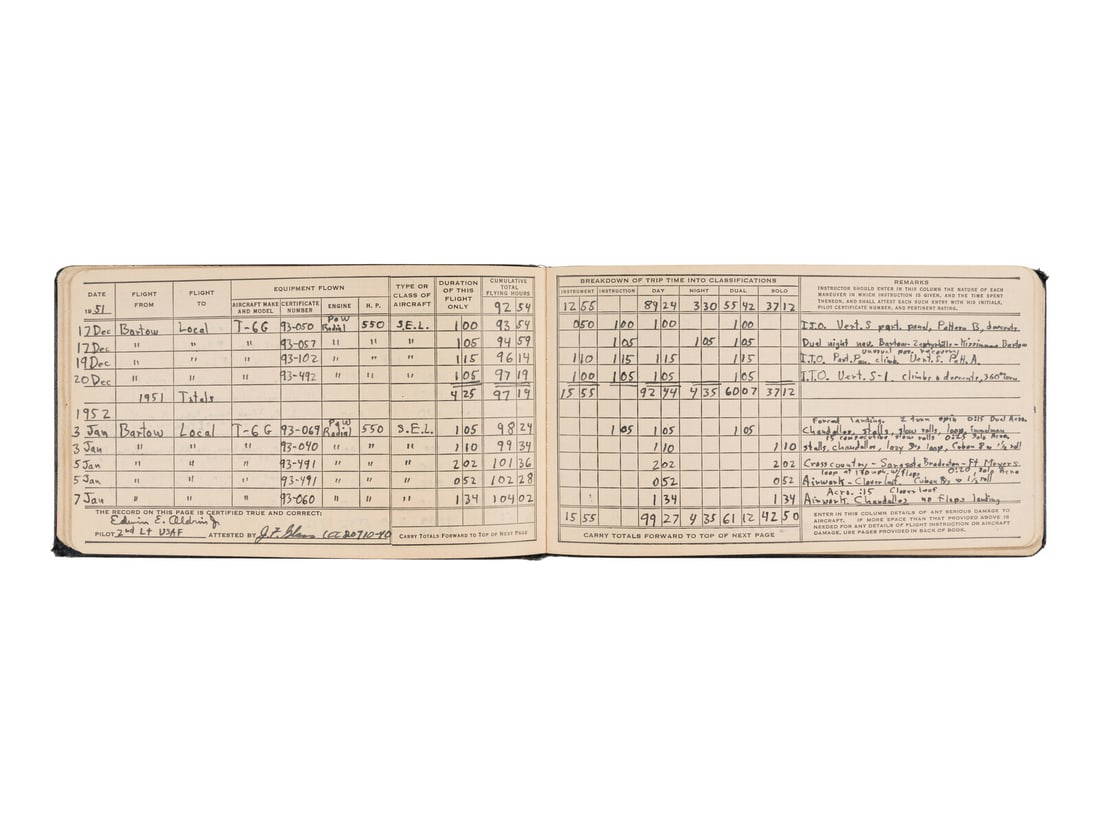 DATE FLIGHT FROM FLIGHT TO EQUIPMENT FLOWN TYPE OR CLASS OF AIRCRAFT DURATION OF THIS FLIGHT ONLY CUMULATIVE TOTAL FLYING HOURS
1951 AIRCRAFT MAKE AND MODEL CERTIFICATE NUMBER ENGINE H. P. 92 54
17 Dec Bartow Local T-6G 93-050 P&W Radial 550 S.E.L. 1 00 93 54
17 Dec " " " 93-057 " " " 1 05 94 59
19 Dec " " " 93-102 " " " 1 15 96 14
20 Dec " " " 93-492 " " " 1 05 97 19
1951 Totals 4 25 97 19
1952
3 Jan Bartow Local T-6G 93-069 P&W Radial 550 S.E.L. 1 05 98 24
3 Jan " " " 93-040 " " " 1 10 99 34
5 Jan " " " 93-491 " " " 2 02 101 36
5 Jan " " " 93-491 " " " 0 52 102 28
7 Jan " " " 93-060 " " " 1 34 104 02
THE RECORD ON THIS PAGE IS CERTIFIED TRUE AND CORRECT:
Edwin E. Aldrin Jr
PILOT 2nd Lt USAF ATTESTED BY CARRY TOTALS FORWARD TO TOP OF NEXT PAGE
BREAKDOWN OF TRIP TIME INTO CLASSIFICATIONS
INSTRUMENT INSTRUCTION DAY NIGHT DUAL SOLO
12 55 89 24 3 30 55 42 37 12
REMARKS
INSTRUCTOR SHOULD ENTER IN THIS COLUMN THE NATURE OF EACH
MANEUVER IN WHICH INSTRUCTION IS GIVEN, AND THE TIME SPENT
THEREON, AND SHALL ATTEST EACH SUCH ENTRY WITH HIS INITIALS,
PILOT CERTIFICATE NUMBER, AND PERTINENT RATING.
0 50 1 00 1 00 1 00 I.T.O. Vert. S part. panel, Pattern B, descents.
1 05 1 05 1 05 Dual night nav. Bartow-Zephyrhills-Kissimmee Bartow
unusual pos. recovery
1 10 1 15 1 15 1 15 I.T.O. Part. Pan. climb Vert. S. Patt. A.
1 00 1 05 1 05 1 05 I.T.O. Vert. S-1. climbs & descents, 360° turn.
15 55 92 44 4 35 60 07 37 12
Forced landing. 2 turn spin 0:15 Dual Acro.
1 05 1 05 1 05 Chandelles, stalls, slow rolls, loop, Immelman
15 consecutive slow rolls 0:25 Solo Acro.
1 10 1 10 stalls, chandelles, lazy 8's loop, Cuban 8 w 1/2 roll
2 02 2 02 Cross country - Sarasota Bradenton - Ft Meyers
loop at 180 mph, w/ flaps 0:20 Solo Acro
0 52 0 52 Airwork - Cloverleaf. Cuban 8's w 1/2 roll
Acro. :15 Cloverleaf
1 34 1 34 Airwork. Chandelles no flaps landing
15 55 99 27 4 35 61 12 42 50
CARRY TOTALS FORWARD TO TOP OF NEXT PAGE
ENTER IN THIS COLUMN DETAILS OF ANY SERIOUS DAMAGE TO
AIRCRAFT. IF MORE SPACE THAN THAT PROVIDED ABOVE IS
NEEDED FOR ANY DETAILS OF FLIGHT INSTRUCTION OR AIRCRAFT
DAMAGE, USE PAGES PROVIDED IN BACK OF BOOK.